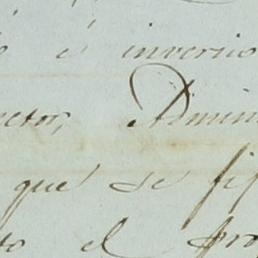 é inverti
ector, Admin
que se fi
to el pro